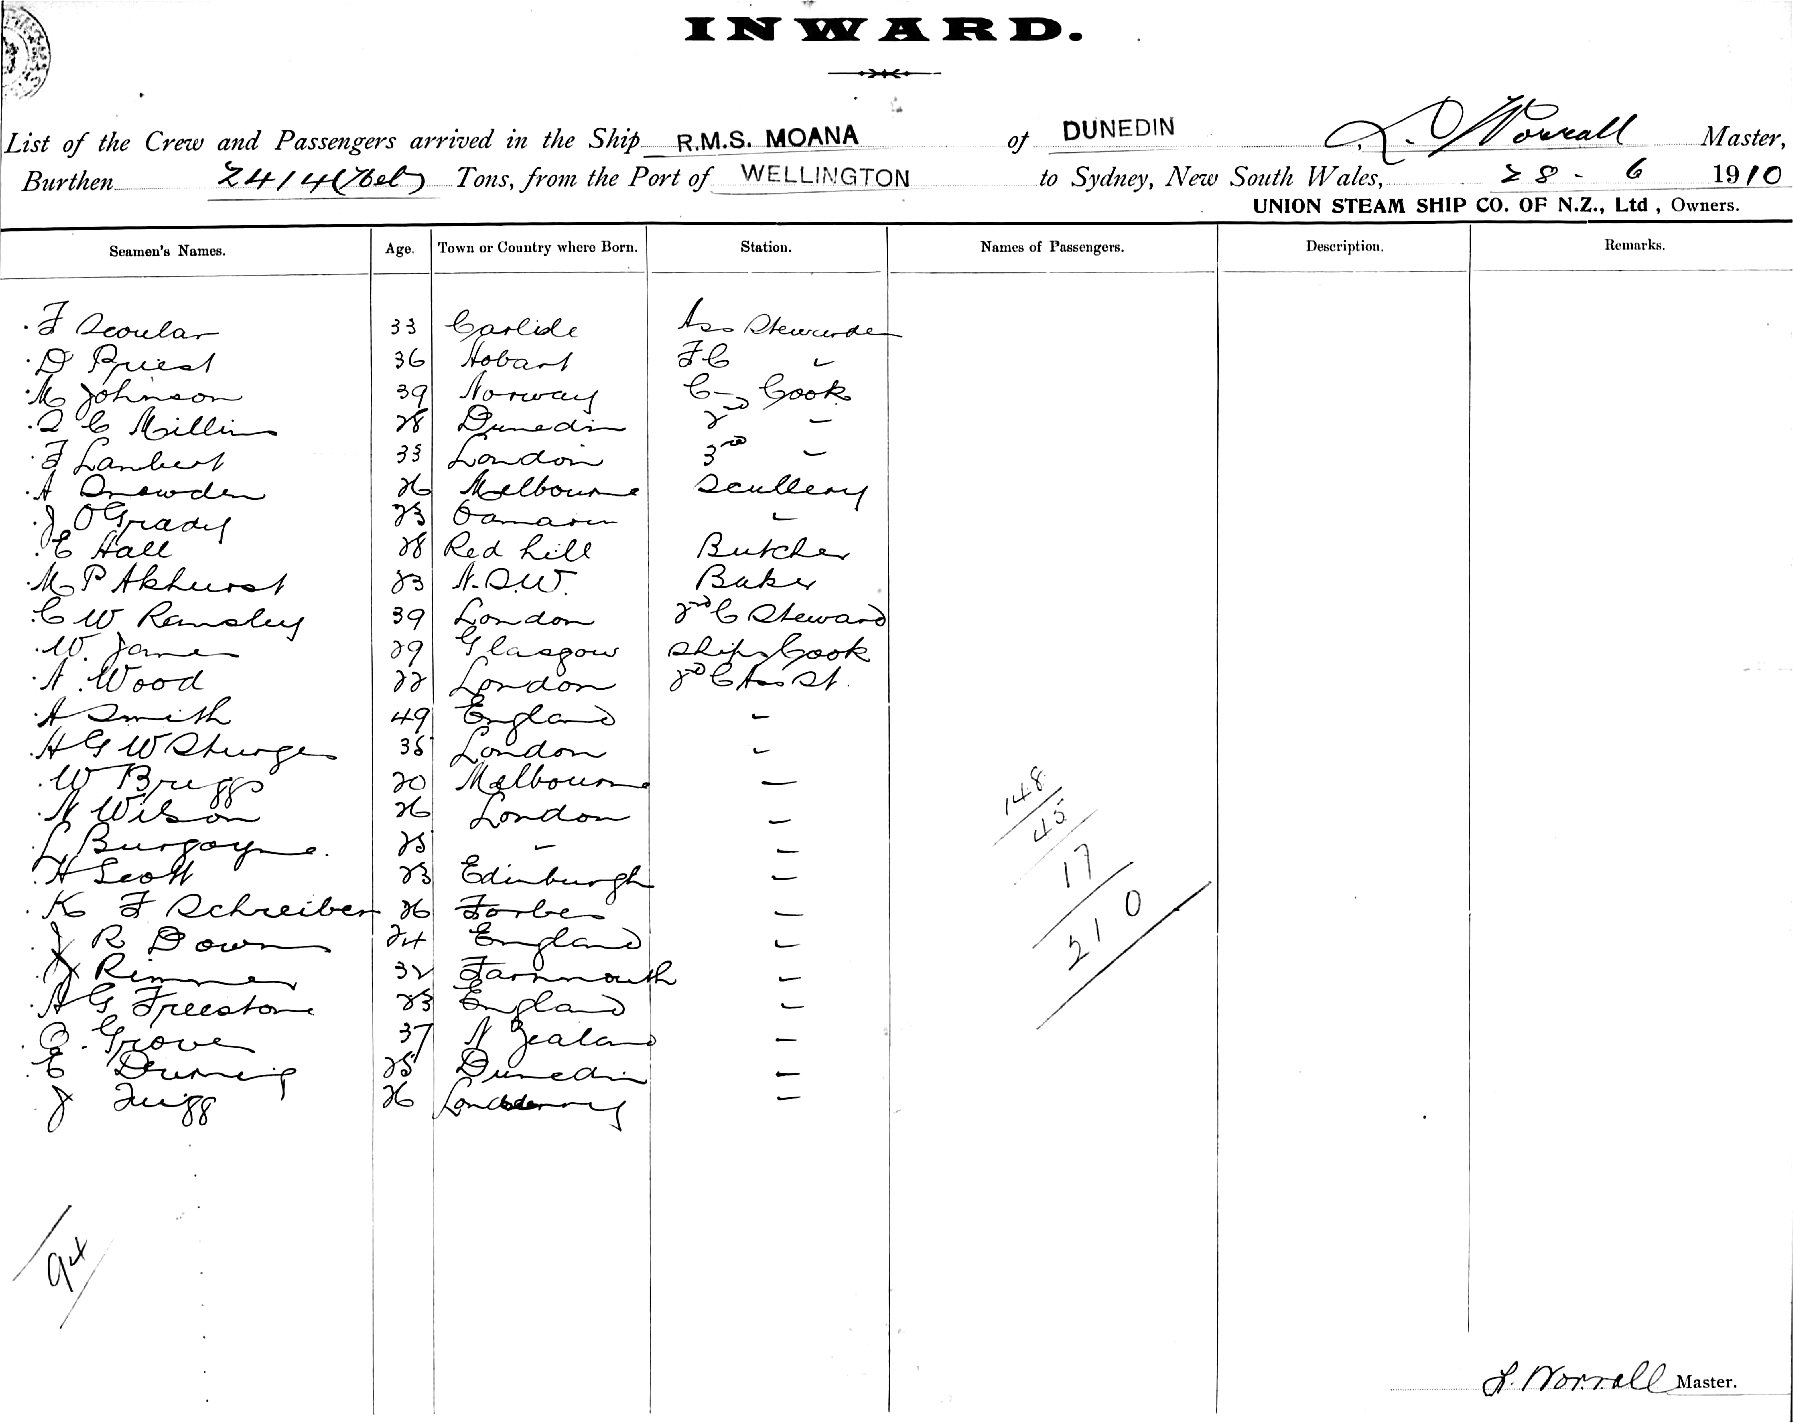 INWARD.
List of the Crew and Passengers arrived in the Ship R.M.S. MOANA of DUNEDIN L. Worrall Master,
Burthen 2414 Tons, from the Port of WELLINGTON to Sydney, New South Wales, 28 - 6 1910
UNION STEAM SHIP CO. OF N.Z., Ltd, Owners.
Seamen's Names. Age. Town or Country where Born. Station. Names of Passengers. Description. Remarks.
F Scoular 33 Carlisle Ass Stewardess
D Priest 36 Hobart F C "
M Johnson 39 Norway C Cook
C Millin 28 Dunedin 2nd "
F Lambert 33 London 3rd "
A Snowden 26 Melbourne Scullery
J O'Grady 23 Oamaru "
E Hall 28 Red hill Butcher
M P Akhurst 23 N.S.W. Baker
C W Ramsley 39 London 2nd C Steward
W. James 29 Glasgow Ships Cook
A Wood 22 London 2nd C Ass St.
A Smith 49 England "
H G W Sturges 35 London "
W Briggs 20 Melbourne "
N Wilson 26 London "
L Burgoyne. 25 "
H Scott 23 Edinburgh "
K F Schreiber 26 Forbes "
J R Down 24 England "
J Rimmer 32 "
A G Freestone 23 England "
Grover 37 N Zealand "
E 25 Dunedin "
J 26 Londonderry "
148
45
17
210
94
L. Worrall Master.